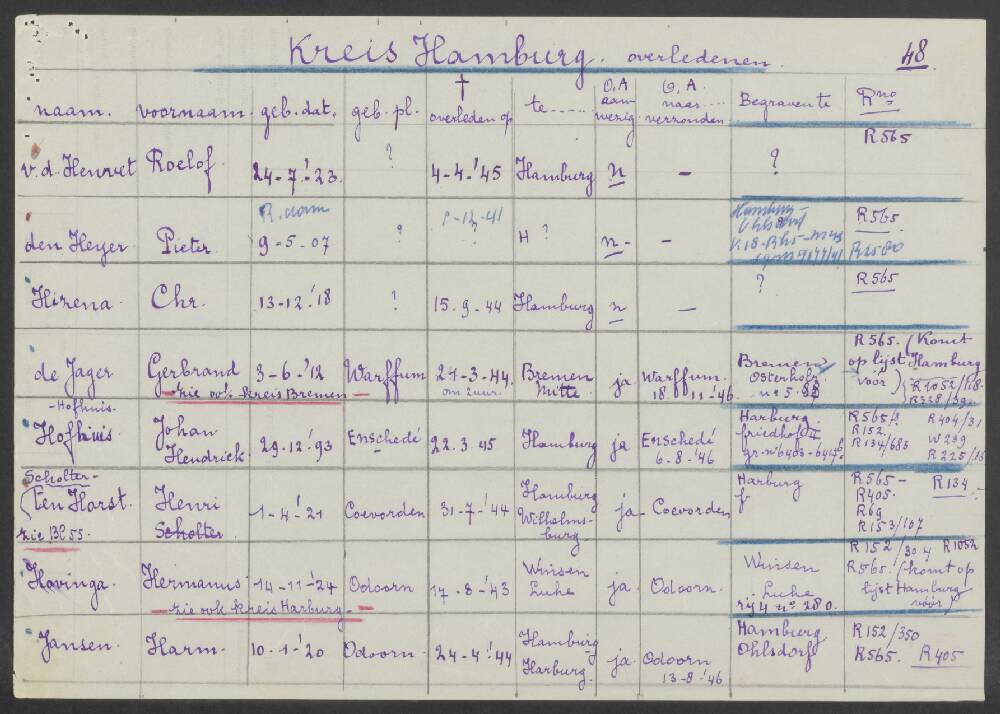 Kreis Hamburg. overledenen. 48.
naam. voornaam. geb. dat. geb. pl. † overleden op te ..... O.A aanwezig. O.A. naar .... verzonden. Begraven te Rno
v.d. Heuvel Roelof. 24-7-'23. ? 4-4-'45 Hamburg n - ? R565
den Heyer Pieter. 9-5-07 ? H ? n - - R565
Hamburg-
R1500
Hizena Chr. 13-12-'18 ? 15-9-44 Hamburg n - ? R565
de Jager Gerbrand 3-6-'12 Warffum 27-3-44. Bremen ja Warffum. Bremen R565. (Komt
- zie ook kreis Bremen - om 2 uur. Mitte 18-11-'46 Osterholz op lijst Hamburg
vóór)
R1052/
R338/
-Hofhuis.
Hofhuis Johan Hendrick 29-12-'93 Enschedé 22-3-45 Hamburg ja Enschedé Harburg. R565 R404/31
6-8-'46 friedhof R152 W239
R134/683 R225/
Scholter-
(ten Horst. Henri 1-4-'21 Coevorden 31-7-'44 Hamburg ja- Coevorden Harburg R565- R134-
Scholter. Wilhelms- f R405.
zie 13255. burg. R69
R153/107
Havinga. Hermanus 14-11-'24 Odoorn 17-8-'43 Winsen ja Odoorn. Winsen R152/304 R1052
- zie ook kreis Harburg - Luhe Luhe R565. (komt op
rij 4 no 280. lijst Hamburg
vóór)
Jansen. Harm. 10-1-'20 Odoorn. 24-4-'44 Hamburg ja Odoorn Hamburg R152/350
Harburg. 13-8-'46 Ohlsdorf R565. R405